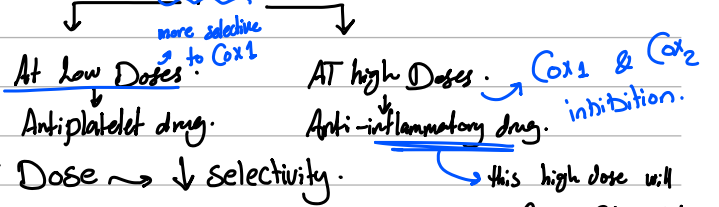 more selective
to Cox1
At low Doses.
AT high Doses.
Cox1 & Cox2
inhibition.
Antiplatelet drug.
Anti-inflammatory drug.
Dose ⇝ ↓ selectivity.
this high dose will